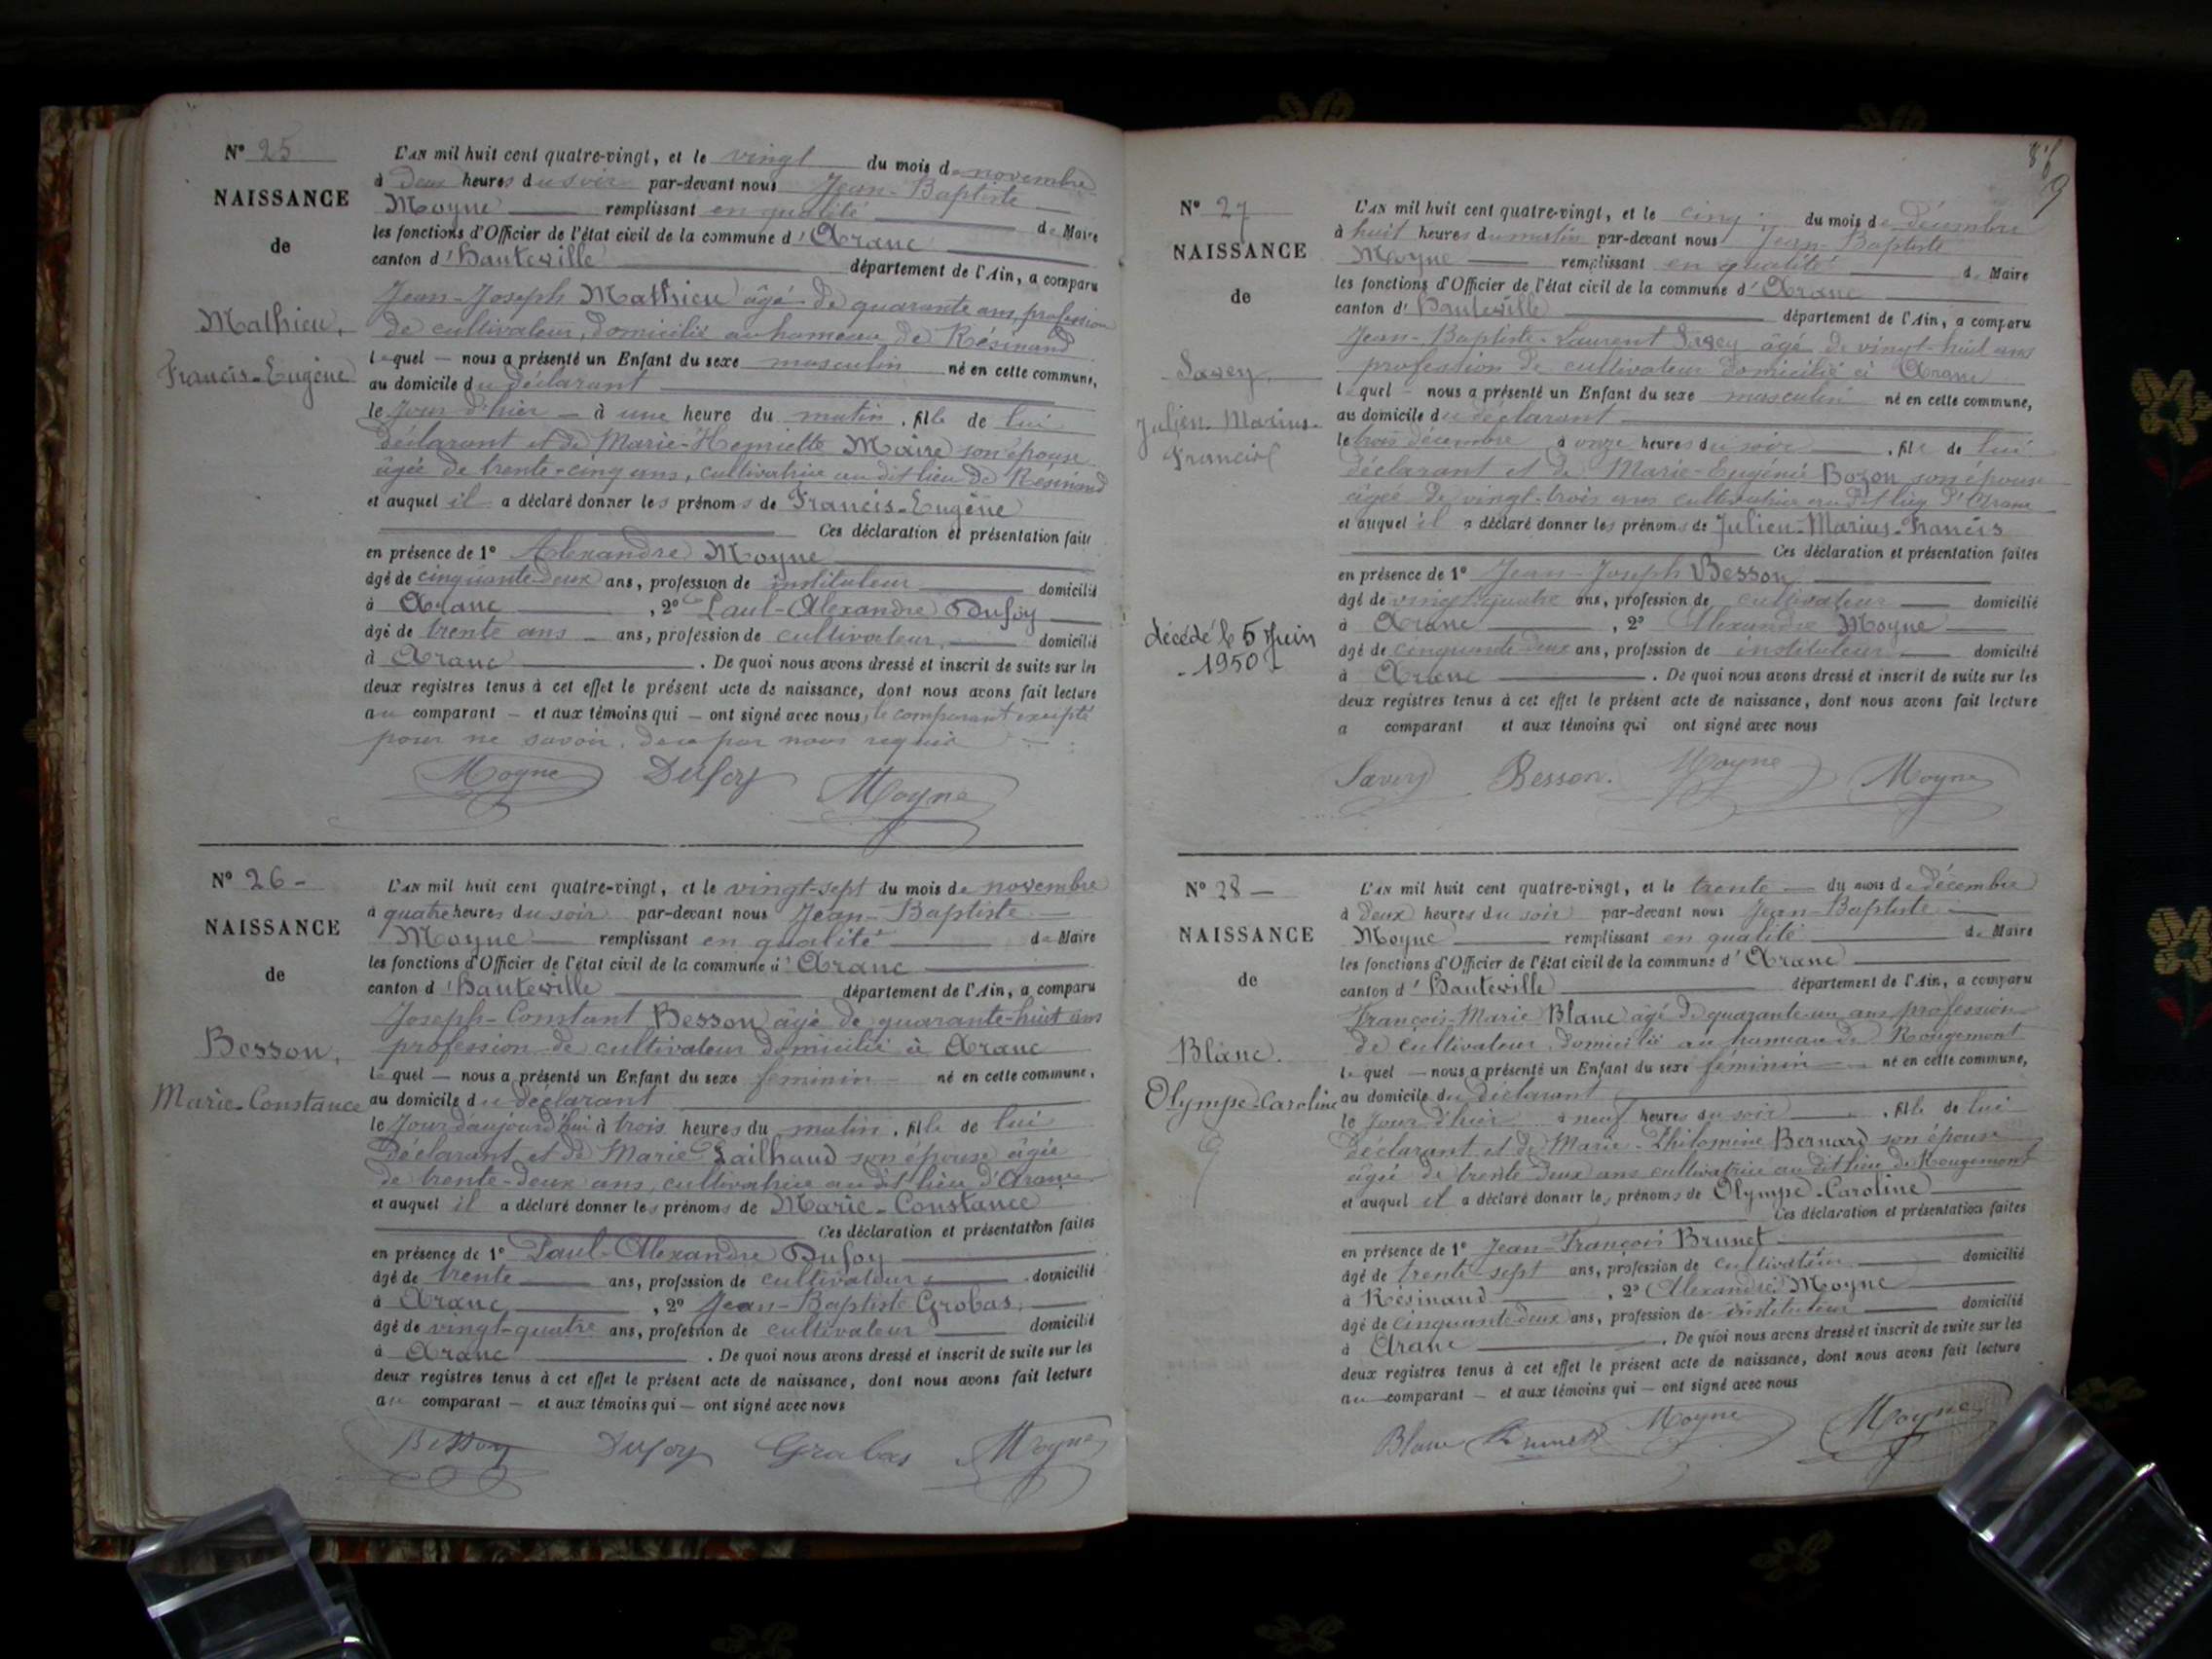 N° 25
NAISSANCE
de
Mathieu,
Francis-Eugène
L'AN mil huit cent quatre-vingt, et le vingt du mois de novembre
à deux heures du soir par-devant nous Jean-Baptiste
Moyne remplissant en qualité de Maire
les fonctions d'Officier de l'état civil de la commune d'Aranc
canton d'Hauteville département de l'Ain, a comparu
Jean-Joseph Mathieu âgé de quarante ans, profession
de cultivateur, domicilié au hameau de Résinand
lequel — nous a présenté un Enfant du sexe masculin né en cette commune,
au domicile du déclarant
le jour d'hier — à une heure du matin, fils de lui
déclarant et de Marie-Henriette Maire son épouse
âgée de trente-cinq ans, cultivatrice au dit lieu de Résinand
et auquel il a déclaré donner les prénoms de Francis-Eugène
Ces déclaration et présentation faites
en présence de 1° Alexandre Moyne
âgé de cinquante-deux ans, profession de instituteur domicilié
à Aranc, 2° Paul-Alexandre Dufoy
âgé de trente ans — ans, profession de cultivateur, domicilié
à Aranc. De quoi nous avons dressé et inscrit de suite sur les
deux registres tenus à cet effet le présent acte de naissance, dont nous avons fait lecture
au comparant — et aux témoins qui — ont signé avec nous, le comparant excepté
pour ne savoir, de ce par nous requis
Moyne Dufoy Moyne
N° 26 -
NAISSANCE
de
Besson,
Marie-Constance
L'AN mil huit cent quatre-vingt, et le vingt-sept du mois de novembre
à quatre heures du soir par-devant nous Jean-Baptiste
Moyne remplissant en qualité de Maire
les fonctions d'Officier de l'état civil de la commune d'Aranc
canton d'Hauteville département de l'Ain, a comparu
Joseph-Constant Besson âgé de quarante-huit ans
profession de cultivateur domicilié à Aranc
lequel — nous a présenté un Enfant du sexe féminin né en cette commune,
au domicile du déclarant
le jour d'aujourd'hui à trois heures du matin, fille de lui
déclarant et de Marie Lailhaud son épouse âgée
de trente-deux ans, cultivatrice au dit lieu d'Aranc
et auquel il a déclaré donner les prénoms de Marie-Constance
Ces déclaration et présentation faites
en présence de 1° Paul-Alexandre Dufoy
âgé de trente ans, profession de cultivateur domicilié
à Aranc, 2° Jean-Baptiste Grobas,
âgé de vingt-quatre ans, profession de cultivateur domicilié
à Aranc. De quoi nous avons dressé et inscrit de suite sur les
deux registres tenus à cet effet le présent acte de naissance, dont nous avons fait lecture
au comparant — et aux témoins qui — ont signé avec nous
Besson Dufoy Grabas Moyne
N° 27
NAISSANCE
de
Savey,
Julien-Marius-
Francis
décédé le 5 Juin
1950
L'AN mil huit cent quatre-vingt, et le cinq du mois de décembre
à huit heures du matin par-devant nous Jean-Baptiste
Moyne remplissant en qualité de Maire
les fonctions d'Officier de l'état civil de la commune d'Aranc
canton d'Hauteville département de l'Ain, a comparu
Jean-Baptiste-Laurent Savey âgé de vingt-huit ans
profession de cultivateur domicilié à Aranc
lequel nous a présenté un Enfant du sexe masculin né en cette commune,
au domicile du déclarant
le trois décembre à onze heures du soir, fils de lui
déclarant et de Marie-Eugénie Bozon son épouse
âgée de vingt-trois ans cultivatrice au dit lieu d'Aranc
et auquel il a déclaré donner les prénoms de Julien-Marius-Francis
Ces déclaration et présentation faites
en présence de 1° Jean-Joseph Besson
âgé de vingt-quatre ans, profession de cultivateur domicilié
à Aranc, 2° Alexandre Moyne
âgé de cinquante-deux ans, profession de instituteur domicilié
à Aranc. De quoi nous avons dressé et inscrit de suite sur les
deux registres tenus à cet effet le présent acte de naissance, dont nous avons fait lecture
a comparant et aux témoins qui ont signé avec nous
Savey Besson. Moyne Moyne
N° 28 —
NAISSANCE
de
Blanc.
Olympe-Caroline
L'AN mil huit cent quatre-vingt, et le trente du mois de décembre
à deux heures du soir par-devant nous Jean-Baptiste
Moyne remplissant en qualité de Maire
les fonctions d'Officier de l'état civil de la commune d'Aranc
canton d'Hauteville département de l'Ain, a comparu
François-Marie Blanc âgé de quarante-un ans profession
de cultivateur, domicilié au hameau de Rougemont
lequel — nous a présenté un Enfant du sexe féminin né en cette commune,
au domicile du déclarant
le jour d'hier à neuf heures du soir, fille de lui
déclarant et de Marie-Philomine Bernard son épouse
âgée de trente deux ans cultivatrice au dit lieu de Rougemont
et auquel il a déclaré donner les prénoms de Olympe-Caroline
Ces déclaration et présentation faites
en présence de 1° Jean-François Brunet
âgé de trente-sept ans, profession de cultivateur domicilié
à Résinand, 2° Alexandre Moyne
âgé de cinquante-deux ans, profession de instituteur domicilié
à Aranc. De quoi nous avons dressé et inscrit de suite sur les
deux registres tenus à cet effet le présent acte de naissance, dont nous avons fait lecture
au comparant — et aux témoins qui — ont signé avec nous
Blanc Brunet Moyne Moyne